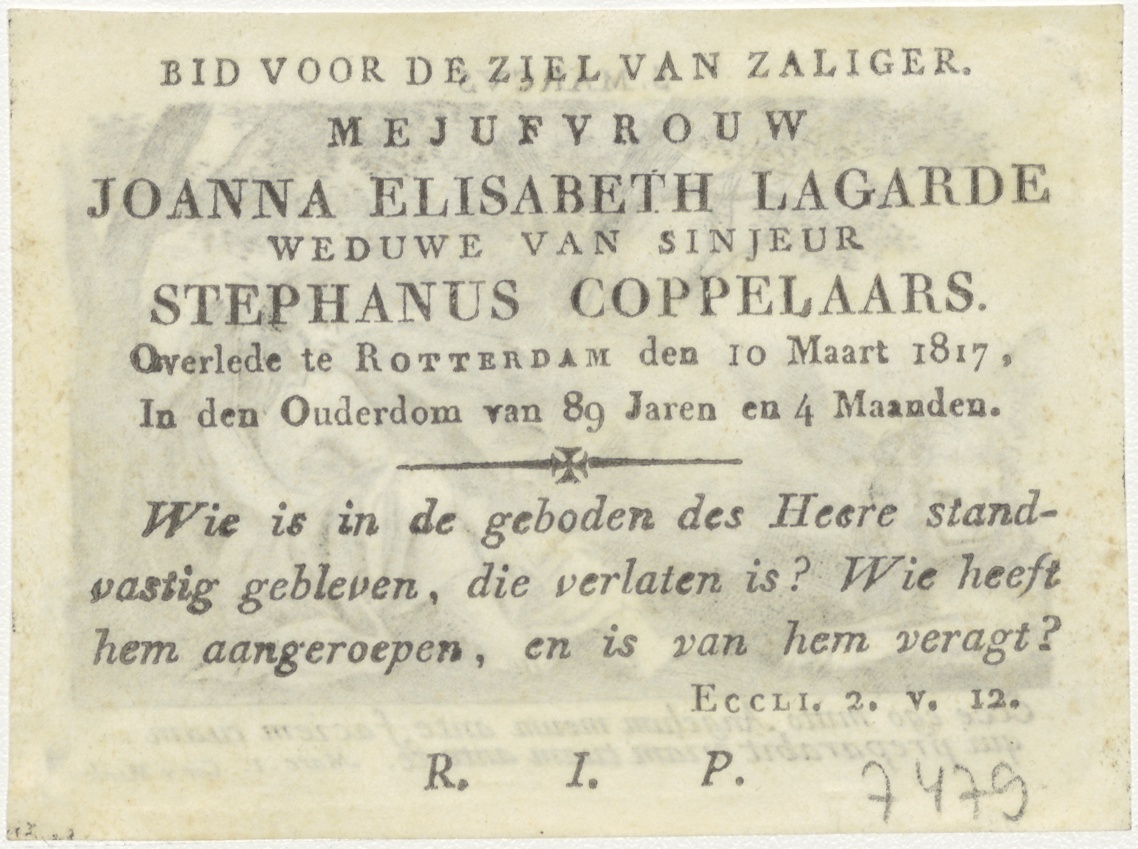 BID VOOR DE ZIEL VAN ZALIGER.
MEJUFVROUW
JOANNA ELISABETH LAGARDE
WEDUWE VAN SINJEUR
STEPHANUS COPPELAARS.
Overlede te ROTTERDAM den 10 Maart 1817,
In den Ouderdom van 89 Jaren en 4 Maanden.
Wie is in de geboden des Heere stand-
vastig gebleven, die verlaten is? Wie heeft
hem aangeroepen, en is van hem veragt?
ECCLI. 2. v. 12.
R. I. P.
7479